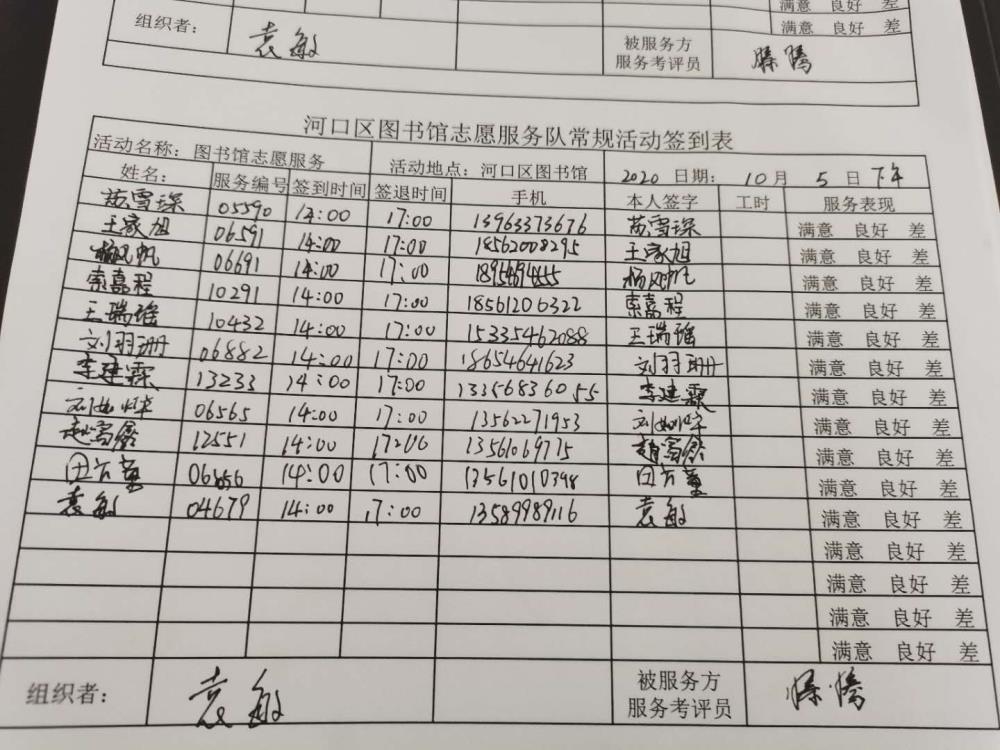 满意 良好 差
组织者： 袁敏 满意 良好 差
被服务方
服务考评员 滕腾
河口区图书馆志愿服务队常规活动签到表
活动名称：图书馆志愿服务 活动地点：河口区图书馆 2020 日期： 10月 5日 下午
姓名： 服务编号 签到时间 签退时间 手机 本人签字 工时 服务表现
苏雪琛 05590 14:00 17:00 13963373676 苏雪琛 满意 良好 差
王家旭 06591 14:00 17:00 18562008295 王家旭 满意 良好 差
杨帆 06691 14:00 17:00 杨帆 满意 良好 差
索嘉程 10291 14:00 17:00 18561206322 索嘉程 满意 良好 差
王瑞瑶 10432 14:00 17:00 15335462088 王瑞瑶 满意 良好 差
刘羽珊 06882 14:00 17:00 18654641623 刘羽珊 满意 良好 差
李建霖 13233 14:00 17:00 13356836055 李建霖 满意 良好 差
06565 14:00 17:00 13562271953 满意 良好 差
12551 14:00 17:00 13561069775 满意 良好 差
14:00 17:00 13561010398 满意 良好 差
袁敏 04679 14:00 17:00 13589989116 袁敏 满意 良好 差
满意 良好 差
满意 良好 差
满意 良好 差
满意 良好 差
组织者： 袁敏 被服务方
服务考评员 滕腾